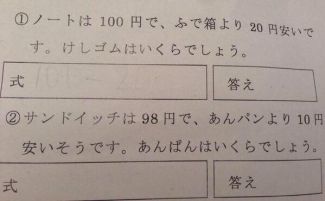 ①ノートは 100 円で、ふで箱より 20 円安いで
す。けしゴムはいくらでしょう。
式 答え
②サンドイッチは 98 円で、あんパンより 10 円
安いそうです。あんぱんはいくらでしょう。
式 答え